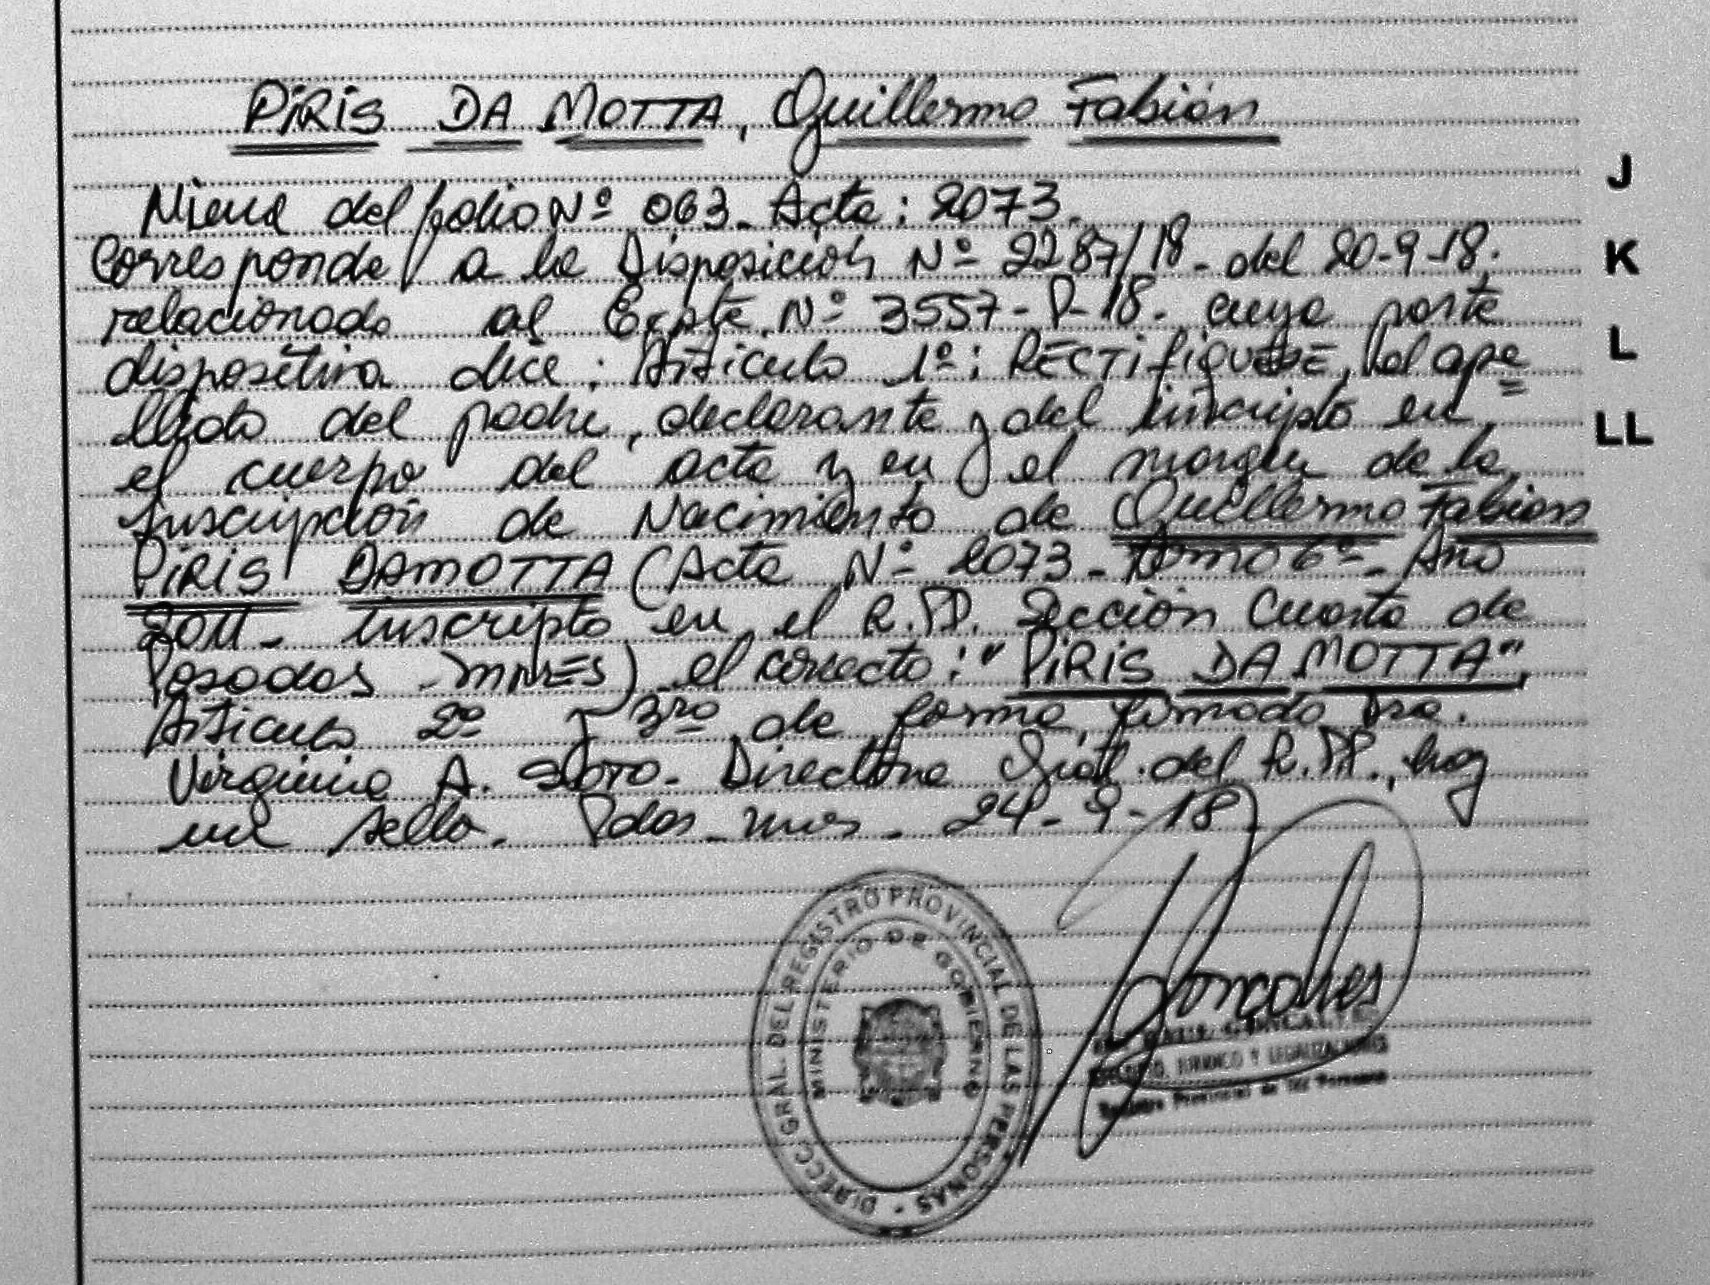 PIRIS DA MOTTA, Guillermo Fabián
Viene del folio Nº 063. Acta: 2073.
J
Corresponde a la Disposición Nº 2287/18. del 20-9-18.
K
relacionado al Expte. Nº 3557-P-18. cuya parte
dispositiva dice: Artículo 1º: RECTIFIQUESE, el ape
L
llido del padre, declarante y del inscripto en
LL
el cuerpo del acta y en el margen de la
Inscripción de Nacimiento de Guillermo Fabián
PIRIS DAMOTTA (Acta Nº 2073 - Tomo 6º - Año
2011 - Inscripto en el R.PP. Sección Cuarta de
Posadas - MNES) el correcto: "PIRIS DA MOTTA",
Artículo 2º y 3ro de forma, firmado Dra.
Virginia A. Directora Gral. del R.PP., hay
un sello. Pdas. Mnes. 24-9-18
DIRECC. GRAL. DEL REGISTRO PROVINCIAL DE LAS PERSONAS
MINISTERIO DE GOBIERNO
Y LEGALIZACIONES
Registro Provincial de las Personas